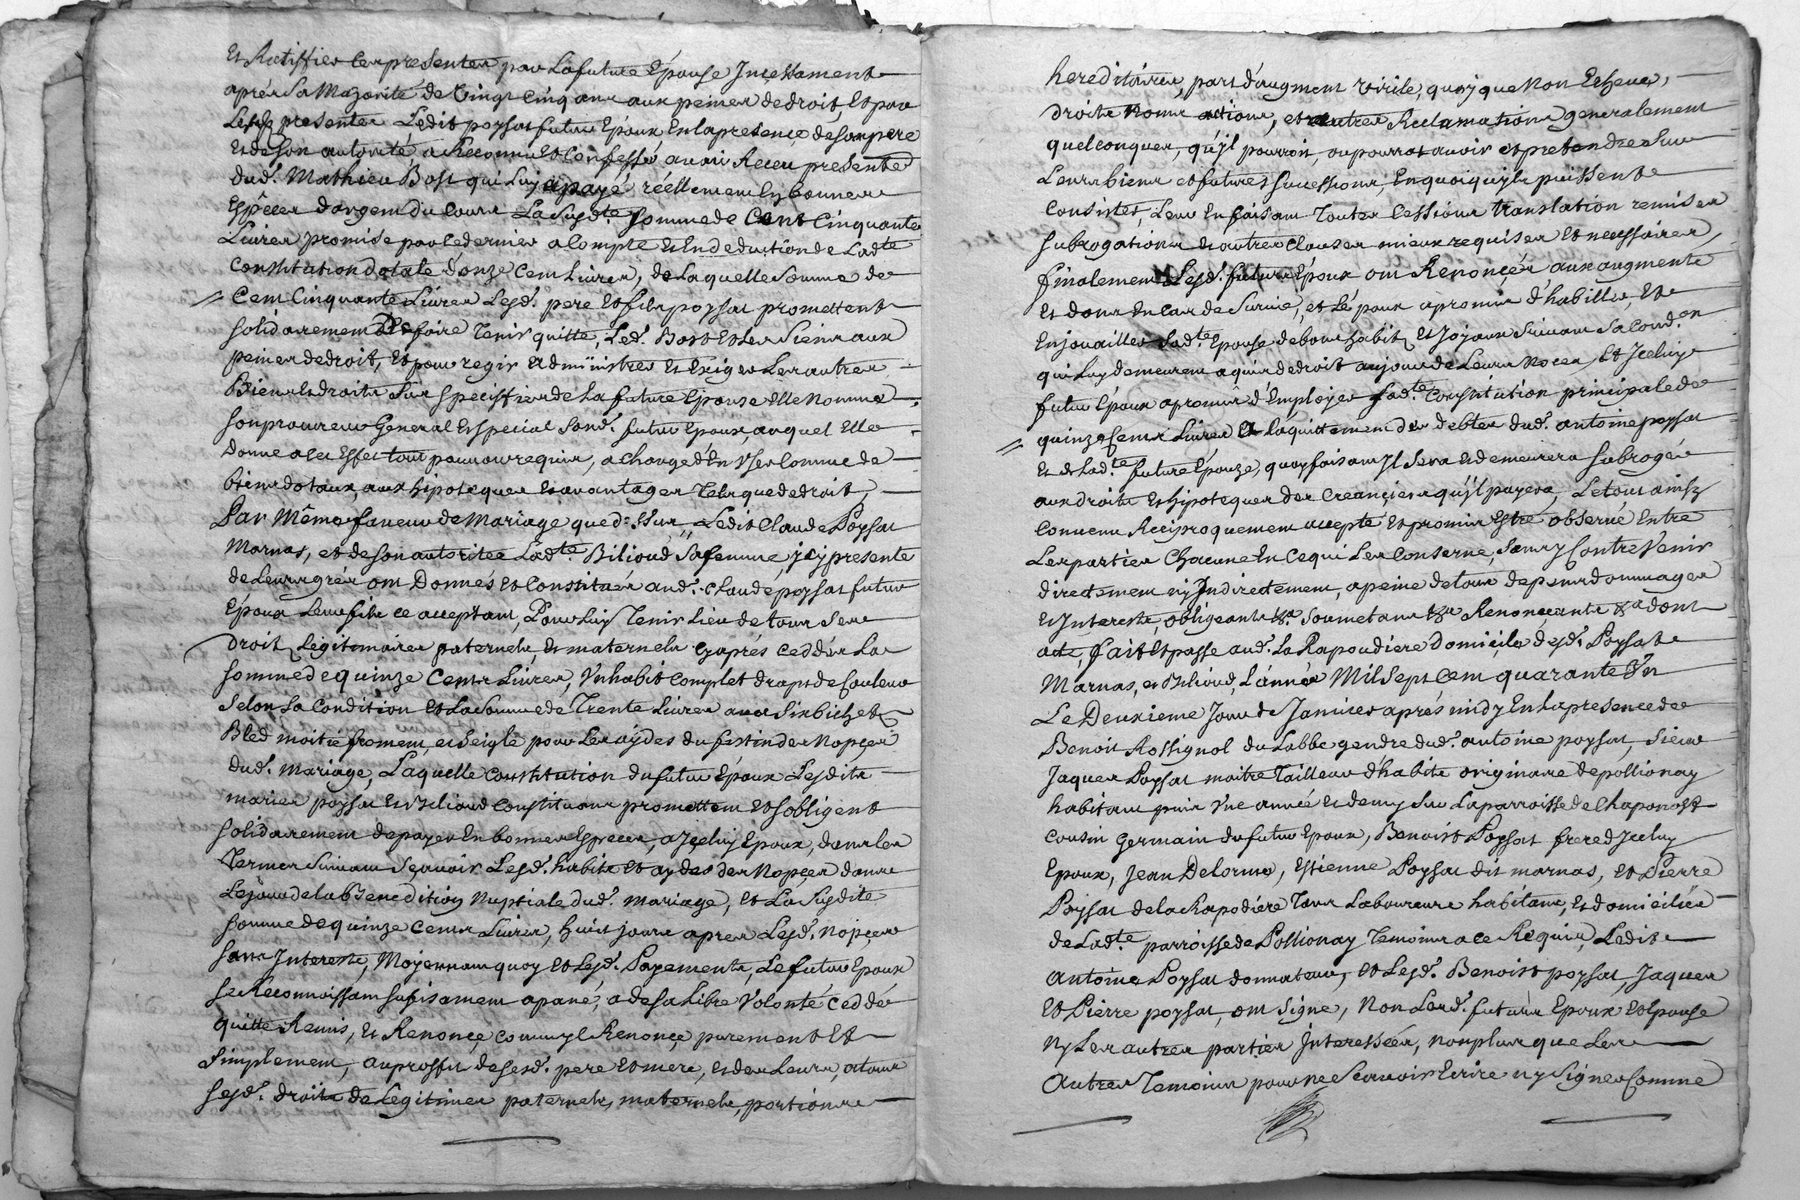 Et Ratiffier Les presentes par La future Epouse Incessament
après Sa Majorité de Vingt Cinq ans aux peines de droit, Et par
Les presentes Ledit poysat futur Epoux En la presence de son pere
Et de son autorité, a Reconnu et Confessé avoir Receu presentet
dud. Mathieu Bost qui Luy a payé réellement En bonnes
Espêces d'argent du Cours La Susdte somme de Cent Cinquante
Livres promise par Le dernier a Compte et En deduction de Ladte
Constitution dotale d'onze Cent Livres, de Laquelle Somme de
Cent Cinquante Livres Lesd. pere Et fils poysat promettent
solidairement De faire tenir quitte, Led. Bost Et Les Siens aux
peines de droit, Et pour regir administrer Et Exiger Les autres
Biens Et droits Sus specifiies de La future Epouse Elle Nomme
son procureur General Et special Sond. futur Epoux, auquel Elle
Donne a cet Effet tout pouvoir requis, a charge d'En User Comme de
biens dotaux, aux hipoteques Et avantages Tels que de droit,
Par Même faveur de Mariage que dessus, Ledit Claude Poysat
Marnas, et de son autorité Ladte Bilioud Sa femme, icy presente
de Leurs gréz ont Donnés et Constitués aud. Claude poysat futur
Epoux Leur fils ce acceptant, Pour Luy Tenir Lieu de tous Ses
droits Légitimaires paternels, et maternels Cy après Ceddés La
somme de quinze Cents Livres, Un habit Complet drap de Couleur
Selon Sa Condition Et La Somme de Trente Livres avec Six bichets
Bled moitié froment, et Seigle pour Les aydes du festin des Nopces
dud. Mariage, Laquelle Constitution du futur Epoux Lesdits
mariés poysat Et Bilioud Constituans promettent Et S'obligent
solidairement de payer En bonnes Especes, a Iceluy Epoux, dans Les
Termes Suivans Scavoir Lesd. habits Et aydes des Nopces dans
Le jour de la Benediction Nuptiale dud. mariage, Et La Susdite
somme de quinze Cents Livres, huit jours apres Lesd. Nopces
sans Interests, Moyennant quoy Et Lesd. Payements, Le futur Epoux
se Reconnoissant sufisament apané, a de sa Libre Volonté Ceddé
quitté Remis, Et Renoncé comme jl Renonce purement Et
Simplement, au proffit de sesd. pere Et mere, et des Leurs, a tous
sesd. droits de Legitimes paternels, maternels, portions
hereditaires, part d'augment virile, quoy que Non Echeus,
droits Noms actions, et autres Reclamations generalement
quelconques, qu'jl pourroit, ou pourrat avoir et pretendre Sur
Leurs biens et futures successions, En quoi qu'jls puissent
Consister, Leur En faisant Toutes Cessions translation remises
subrogations Et autres Clauses mieux requises Et necessaires,
finalement Lesd. futurs Epoux ont Renoncés aux augments
Et dons En Cas de Survie, et L'époux a promis d'habiller, Et
Enjouailler Ladte Epouse de bons habits Et Joyaux Suivant Sa Cond.on
qui Luy demeurent aquis de droit au jour de Leurs Noces, Et Iceluy
futur Epoux a promis d'Employer Ladte Constitution principale de
quinze Cents Livres A l'aquittement des debtes dud. antoine poysat
Et de Ladte future Epouze, quoy faisant Il Sera Et demeurera subrogée
aux droits Et hipoteques des Creanciers qu'jl payera, Le tout ainsy
Convenu Reciproquement accepté, Et promis Estre observé Entre
Les parties Chacune En ce qui Les Conserne, Sans y ContreVenir
directement ny Indirectement, a peine de tous depens dommages
Et Interests, obligeants &a Soumetans &a Renonceants &a dont
acte, fait Et passé aud. La Rapoudiere Domicile desd. Poysat
Marnas, et Bilioud, L'année Mil Sept Cent quarante Un
Le Deuxieme Jour de Janvier après midy En La presence de
Benoit Rossignol du Labbe gendre dud. antoine poysat, Sieur
Jaques Poysat maitre Tailleur d'habits originaire de pollionay
habitant puis Une année Et demy Sur La parroisse de Chaponost
Cousin Germain du futur Epoux, Benoist Poysat frere d'Iceluy
Epoux, Jean Delorme, Estienne Poysat dit marnas, et Pierre
Poysat de la Rapodiere Tous Laboureurs habitans, Et domiciliés
de Ladte parroisse de Pollionay Temoins a ce Requis, Ledit
Antoine Poysat donnateur, Et Lesd. Benoist poysat, Jaques
Et Pierre poysat, ont Signé, Non Lesd. futurs Epoux Et Epouse
Ny Les autres parties Interessées, non plus que Les
Autres Temoins pour ne Scavoir Ecrire ny Signer Comme